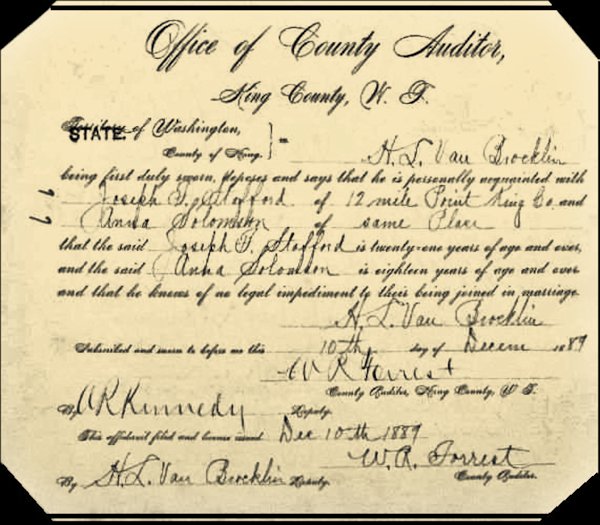 Office of County Auditor,
King County, W. T.
Territory STATE. of Washington,
County of King. } ss
H. L. Van Brocklin
being first duly sworn, deposes and says that he is personally acquainted with
Joseph T. Stafford of 12 mile Point King Co. and
Anna Solomson of same Place
that the said Joseph T. Stafford is twenty-one years of age and over,
and the said Anna Solomson is eighteen years of age and over
and that he knows of no legal impediment to their being joined in marriage.
H. L. Van Brocklin
Submitted and sworn to before me this 10th day of Decem 1889
W R Forrest
County Auditor, King County, W. T.
By A R Kennedy Deputy.
This affidavit filed and license issued Dec 10th 1889
W. R. Forrest
County Auditor.
By H. L. Van Brocklin Deputy.